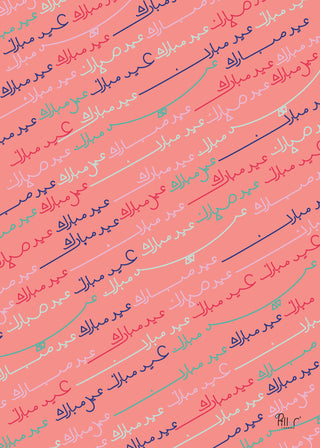 عيد مبارك عيد مبارك
عيد مبارك عيد مبارك عيد مبارك
عيد مبارك عيد مبارك عيد مبارك
عيد مبارك عيد مبارك عيد مبارك
عيد مبارك عيد مبارك عيد مبارك
عيد مبارك عيد مبارك عيد مبارك
عيد مبارك عيد مبارك عيد مبارك
عيد مبارك عيد مبارك عيد مبارك
عيد مبارك عيد مبارك عيد مبارك
عيد مبارك عيد مبارك عيد مبارك
عيد مبارك عيد مبارك عيد مبارك
عيد مبارك عيد مبارك عيد مبارك
عيد مبارك عيد مبارك عيد مبارك
عيد مبارك عيد مبارك عيد مبارك
عيد مبارك عيد مبارك